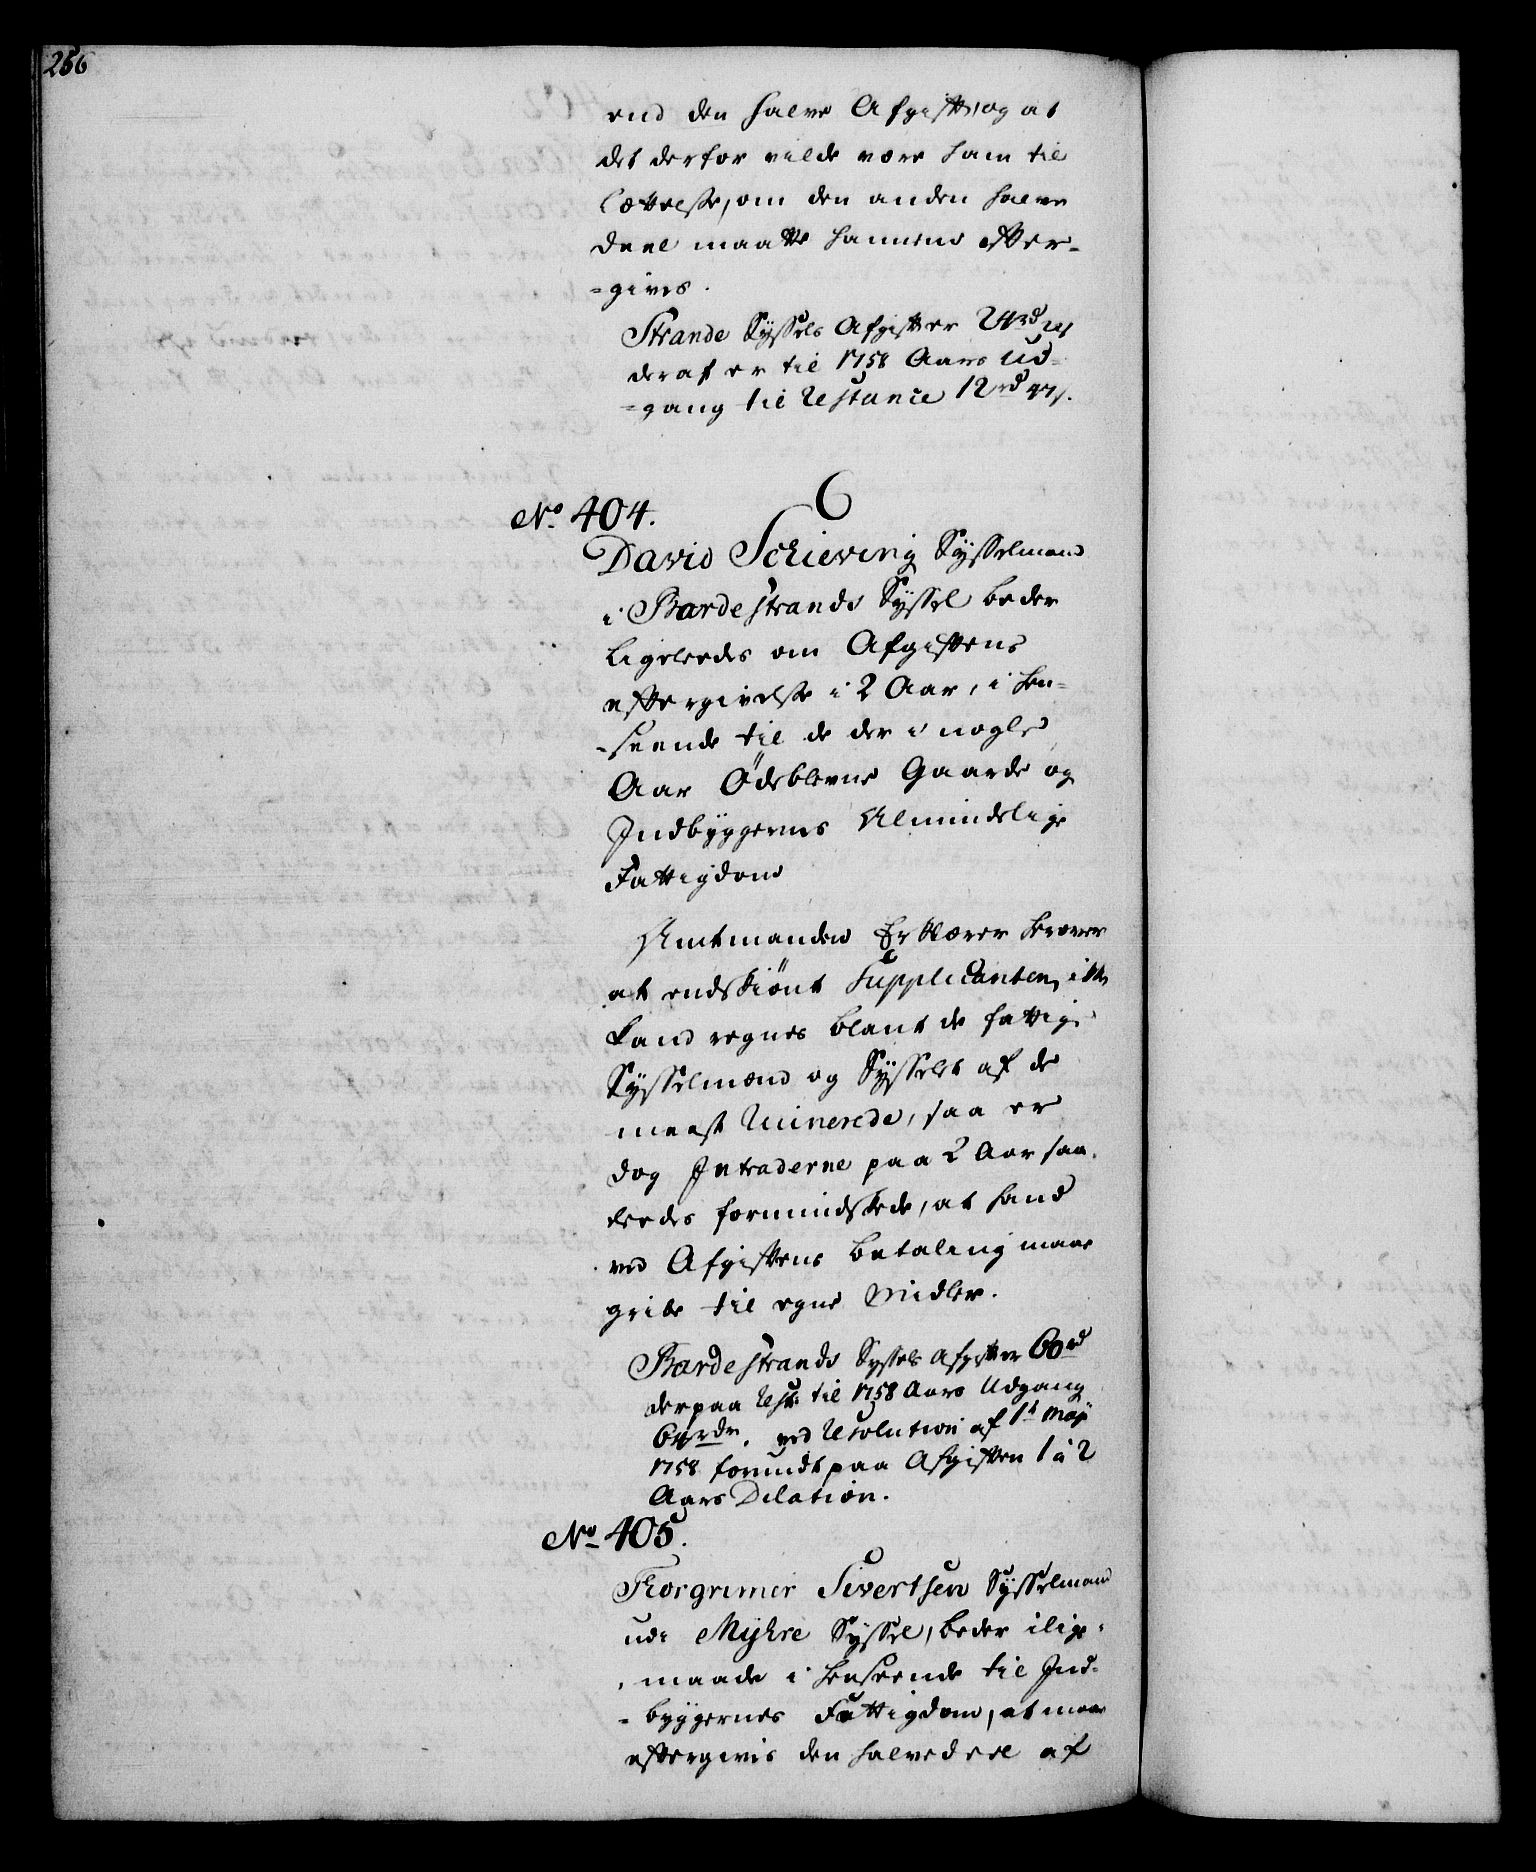 256
end den halve Afgift, og at
det derfor vilde være ham til
Lættelse, om den anden halve
Deel maatte hannem efter-
=gives.
Strande Syssels Afgift er
deraf er til 1758 Aars Ud-
=gang til Restance 12 rd
No 404.
David Schieving Sysselmand
i Bardestrands Syssel beder
ligeleedes om Afgiftens
eftergivelse i 2 Aar, i hen-
-seende til de der i nogle
Aar Ödeblevne Gaarde og
Indbyggernes Almindelige
Fattigdom
Amtmanden Erklærer herover
at endskiönt Supplicanten ikke
kand regnes blant de fattige
Sysselmænd og Sysselet af de
meest Ruinerede, saa er
dog Intraderne paa 2 Aar saa-
leedes formindskede, at hand
ved Afgiftens Betaling maae
gribe til egne Midler.
Bardestrands Syssels Afgift er 60 rd
derpaa Rest: til 1758 Aars Udgang
64 rdr. ved Resolution af 1t Maji
1758 forundt paa Afgiften 1 à 2
Aars Dilation.
No 405.
Thorgrimer Sivertsen Sysselmand
udi Myhre Syssel, beder ilige-
maade i henseende til Ind-
=byggernes Fattigdom, at maae
eftergives den halvedeel af